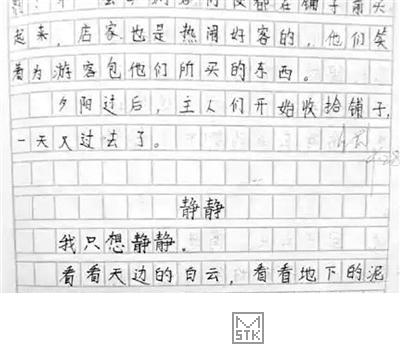 起来，店家也是热闹好客的，他们笑
着为游客包他们所买的东西。
夕阳过后，主人们开始收拾铺子，
一天又过去了。
静静
我只想静静。
看看天边的白云，看看地下的泥
STK